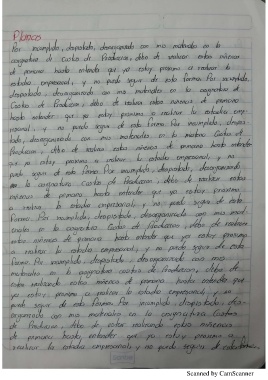 Planas
Por incumplido, despistado, desorganizado con mis materiales en la
asignatura de Costos de Producción, debo de realizar estos números
de primaria hasta entender que ya estoy proximo a realizar la
estadia empresarial, y no puedo seguir de esta forma. Por incumplido,
despistado, desorganizado con mis materiales en la asignatura de
Costos de Produccion, debo de realizar estos numeros de primaria
hasta entender que ya estoy proximo a realizar la estadia empre-
sarial, y no puedo seguir de esta forma. Por incumplido, despis-
tado, desorganizado con mis materiales en la materia Costos de
Produccion, debo de realizar estos numeros de primaria hasta entender
que ya estoy proximo a realizar la estadia empresarial, y no
puedo seguir de esta forma. Por incumplido, despistado, desorganizado
en la asignatura Costos de Produccion, debo de realizar estos
numeros de primaria hasta entender que ya estoy proximo
a realizar la estadia empresarial, y no puedo seguir de esta
forma. Por incumplido, despistado, desorganizado con mis mat
eriales en la asignatura Costos de Produccion, debo de realizar
estos numeros de primaria hasta entender que ya estoy proximo
a realizar la estadia empresarial, y no puedo seguir de esta
forma. Por incumplido, despistado, desorganizado con mis
materiales en la asignatura costos de Produccion, debo de
estar realizando estos numeros de primaria hasta entender que
ya estoy proximo a realizar la estadia empresarial, y no
puedo seguir de esta forma. Por incumplido, despistado, des-
organizado con mis materiales en la asignatura Costos
de Produccion, debo de estar realizando estos numeros
de primaria, hasta entender que ya estoy proximo a
realizar la estadia empresarial y no puedo seguir de esta forma.
Scanned by CamScanner